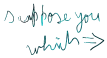 suppose you
which ⇒